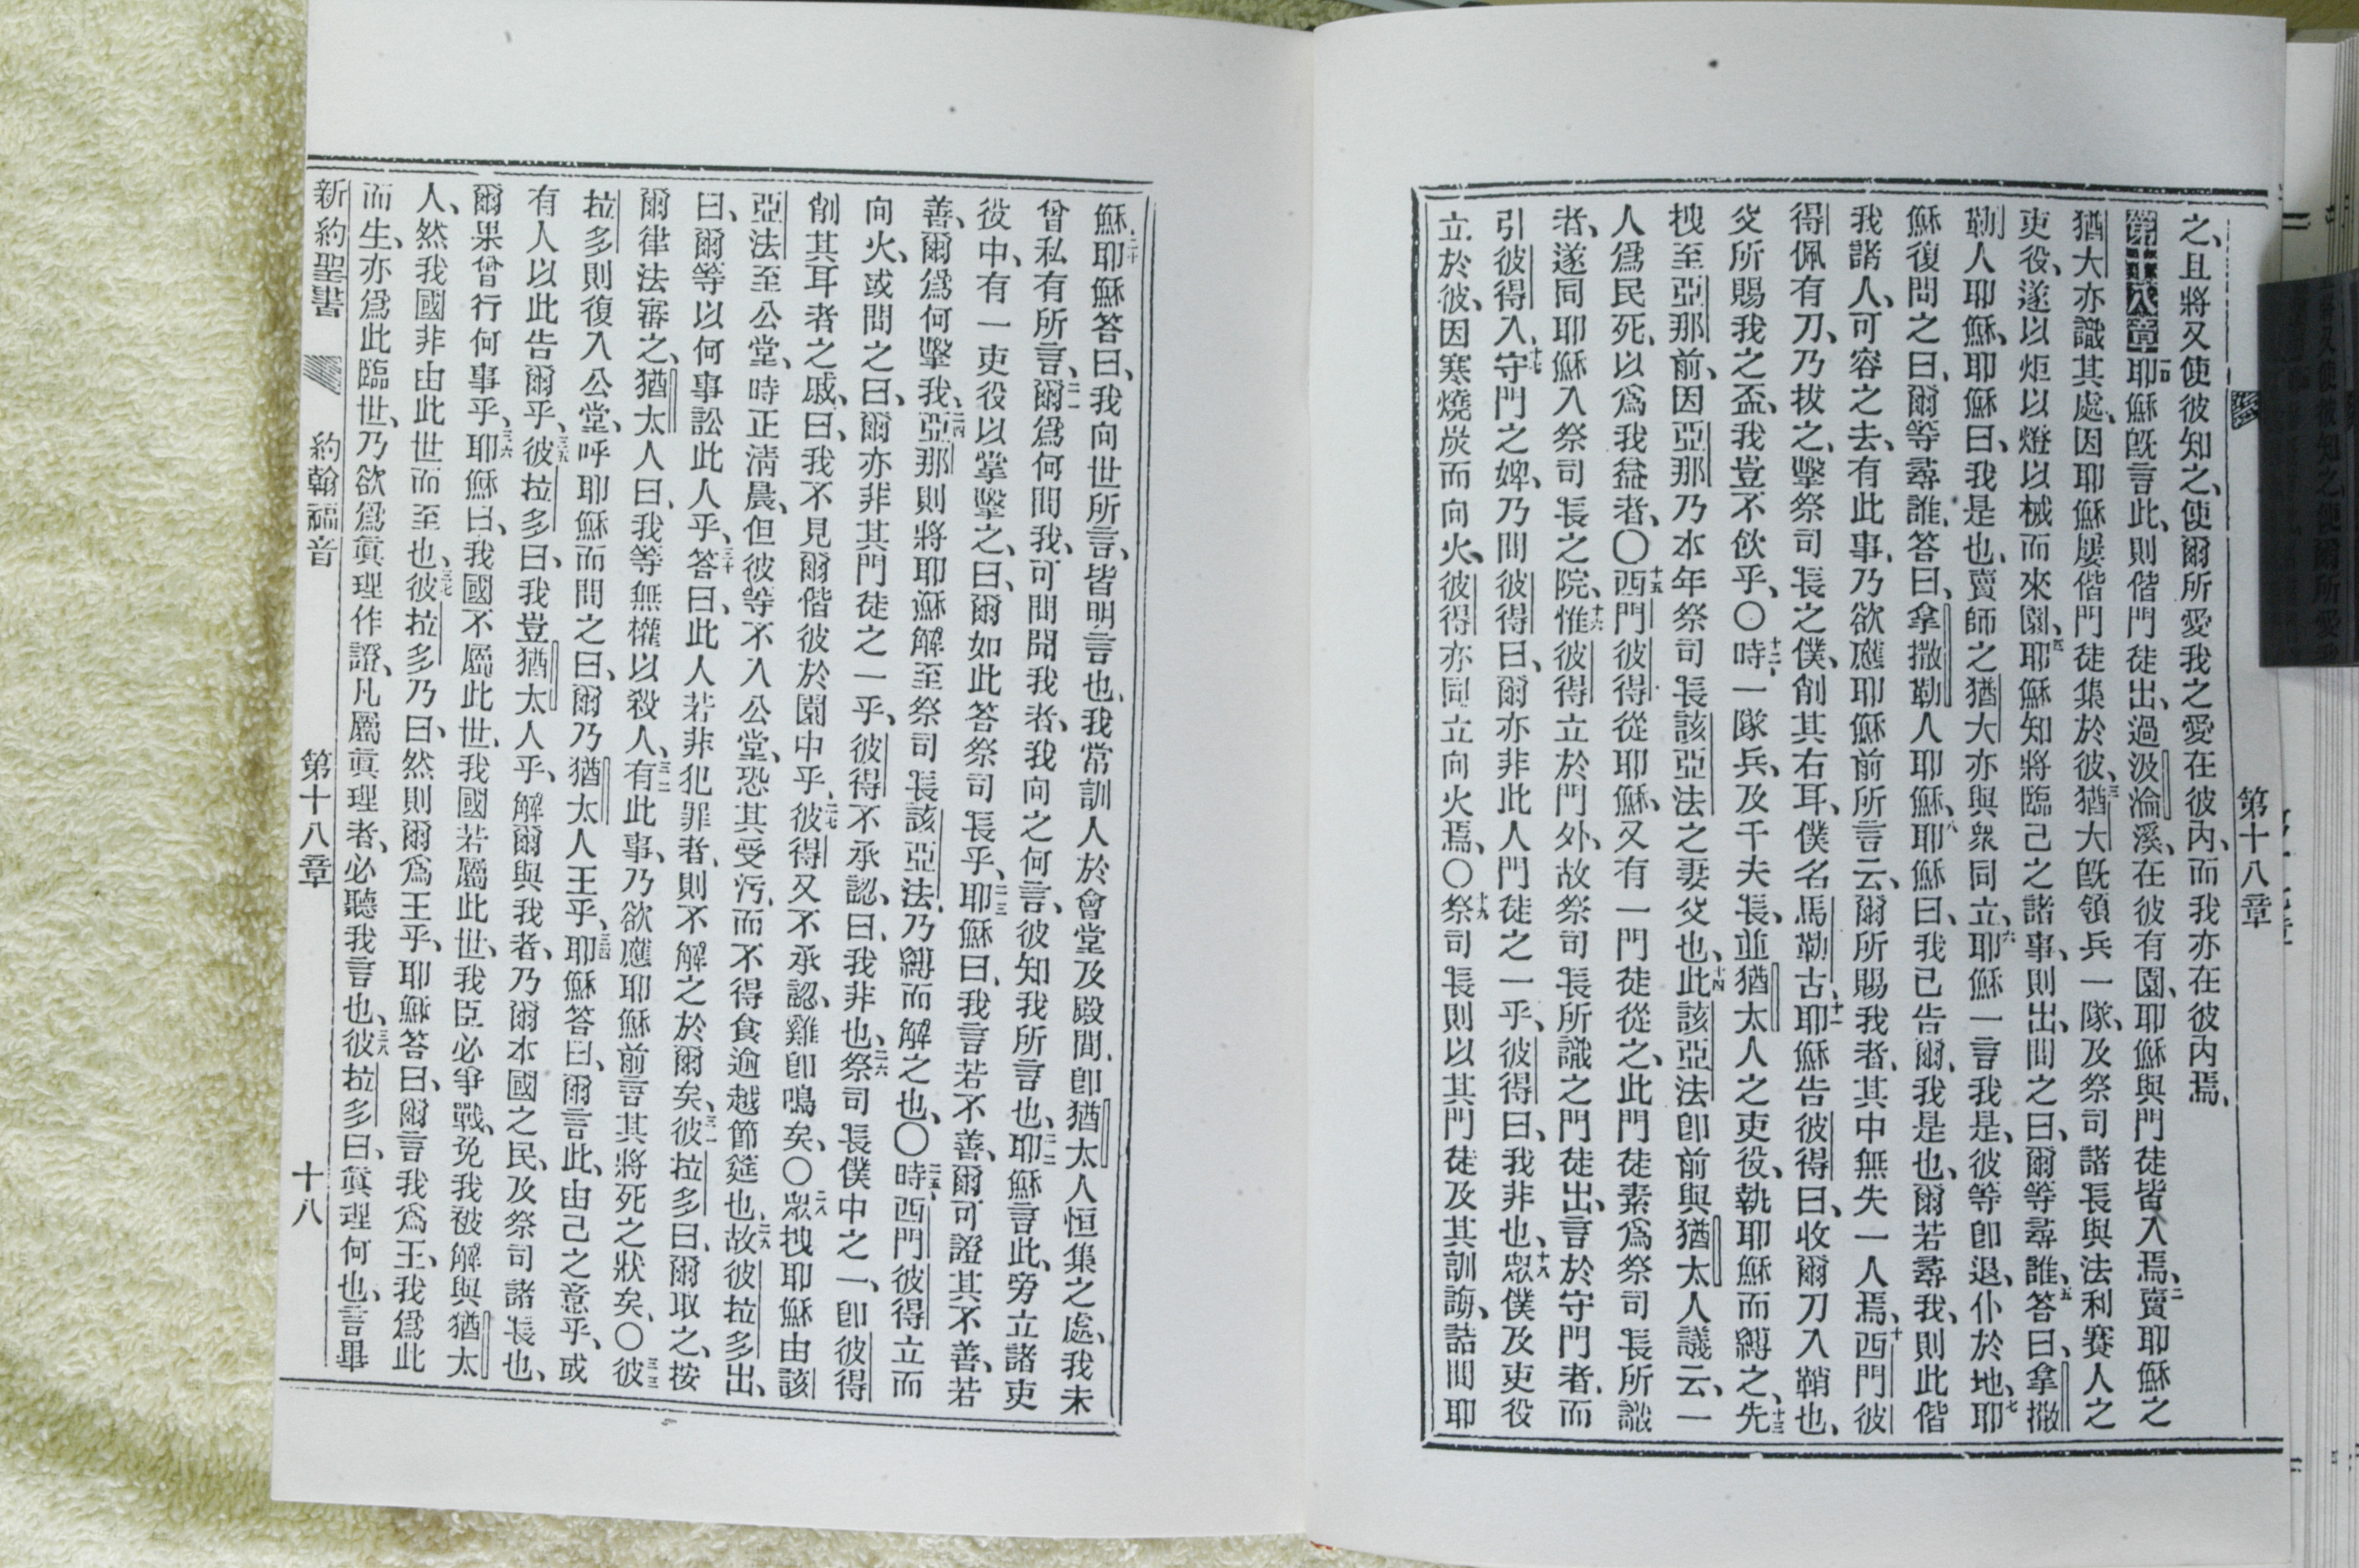 第十八章
之、且將又使彼知之、使爾所愛我之愛在彼內、而我亦在彼內焉、
第十八章 一耶穌旣言此、則偕門徒出、過汲淪溪、在彼有園、耶穌與門徒皆入焉、二賣耶穌之
猶大亦識其處、因耶穌屢偕門徒集於彼、三猶大旣領兵一隊、及祭司諸長與法利賽人之
吏役、遂以炬以燈以械而來園、四耶穌知將臨己之諸事、則出、問之曰、爾等尋誰、五答曰、拿撒
勒人耶穌、耶穌曰、我是也、賣師之猶大亦與衆同立、六耶穌一言我是、彼等卽退、仆於地、七耶
穌復問之曰、爾等尋誰、答曰、拿撒勒人耶穌、八耶穌曰、我已告爾、我是也、爾若尋我、則此偕
我諸人、可容之去、九有此事、乃欲應耶穌前所言云、爾所賜我者、其中無失一人焉、十西門彼
得佩有刀、乃拔之、擊祭司長之僕、削其右耳、僕名馬勒古、十一耶穌告彼得曰、收爾刀入鞘也、
父所賜我之盃、我豈不飲乎、〇十二時、一隊兵、及千夫長、並猶太人之吏役、執耶穌而縛之、十三先
拽至亞那前、因亞那乃本年祭司長該亞法之妻父也、十四此該亞法卽前與猶太人議云、一
人爲民死、以爲我益者、〇十五西門彼得從耶穌、又有一門徒從之、此門徒素爲祭司長所識
者、遂同耶穌入祭司長之院、十六惟彼得立於門外、故祭司長所識之門徒出、言於守門者、而
引彼得入、十七守門之婢、乃問彼得曰、爾亦非此人門徒之一乎、彼得曰、我非也、十八衆僕及吏役
立於彼、因寒燒炭而向火、彼得亦同立向火焉、〇十九祭司長則以其門徒及其訓誨、詰問耶
穌、二十耶穌答曰、我向世所言、皆明言也、我常訓人於會堂及殿間、卽猶太人恒集之處、我未
曾私有所言、二一爾爲何問我、可問聞我者、我向之何言、彼知我所言也、二二耶穌言此、旁立諸吏
役中、有一吏役以掌擊之、曰、爾如此答祭司長乎、二三耶穌曰、我言若不善、爾可證其不善、若
善、爾爲何擊我、二四亞那則將耶穌解至祭司長該亞法、乃縛而解之也、〇二五時、西門彼得立而
向火、或問之、曰、爾亦非其門徒之一乎、彼得不承認、曰、我非也、二六祭司長僕中之一、卽彼得
削其耳者之戚、曰、我不見爾偕彼於園中乎、二七彼得又不承認、雞卽鳴矣、〇二八衆拽耶穌由該
亞法至公堂、時正淸晨、但彼等不入公堂、恐其受污、而不得食逾越節筵也、二九故彼拉多出、
曰、爾等以何事訟此人乎、三十答曰、此人若非犯罪者、則不解之於爾矣、三一彼拉多曰、爾取之、按
爾律法審之、猶太人曰、我等無權以殺人、三二有此事、乃欲應耶穌前言其將死之狀矣、〇三三彼
拉多則復入公堂、呼耶穌而問之曰、爾乃猶太人王乎、三四耶穌答曰、爾言此、由己之意乎、或
有人以此告爾乎、三五彼拉多曰、我豈猶太人乎、解爾與我者、乃爾本國之民、及祭司諸長也、
爾果曾行何事乎、三六耶穌曰、我國不屬此世、我國若屬此世、我臣必爭戰、免我被解與猶太
人、然我國非由此世而至也、三七彼拉多乃曰、然則爾爲王乎、耶穌答曰、爾言我爲王、我爲此
而生、亦爲此臨世、乃欲爲眞理作證、凡屬眞理者、必聽我言也、三八彼拉多曰、眞理何也、言畢
新約聖書 約翰福音 第十八章 十八